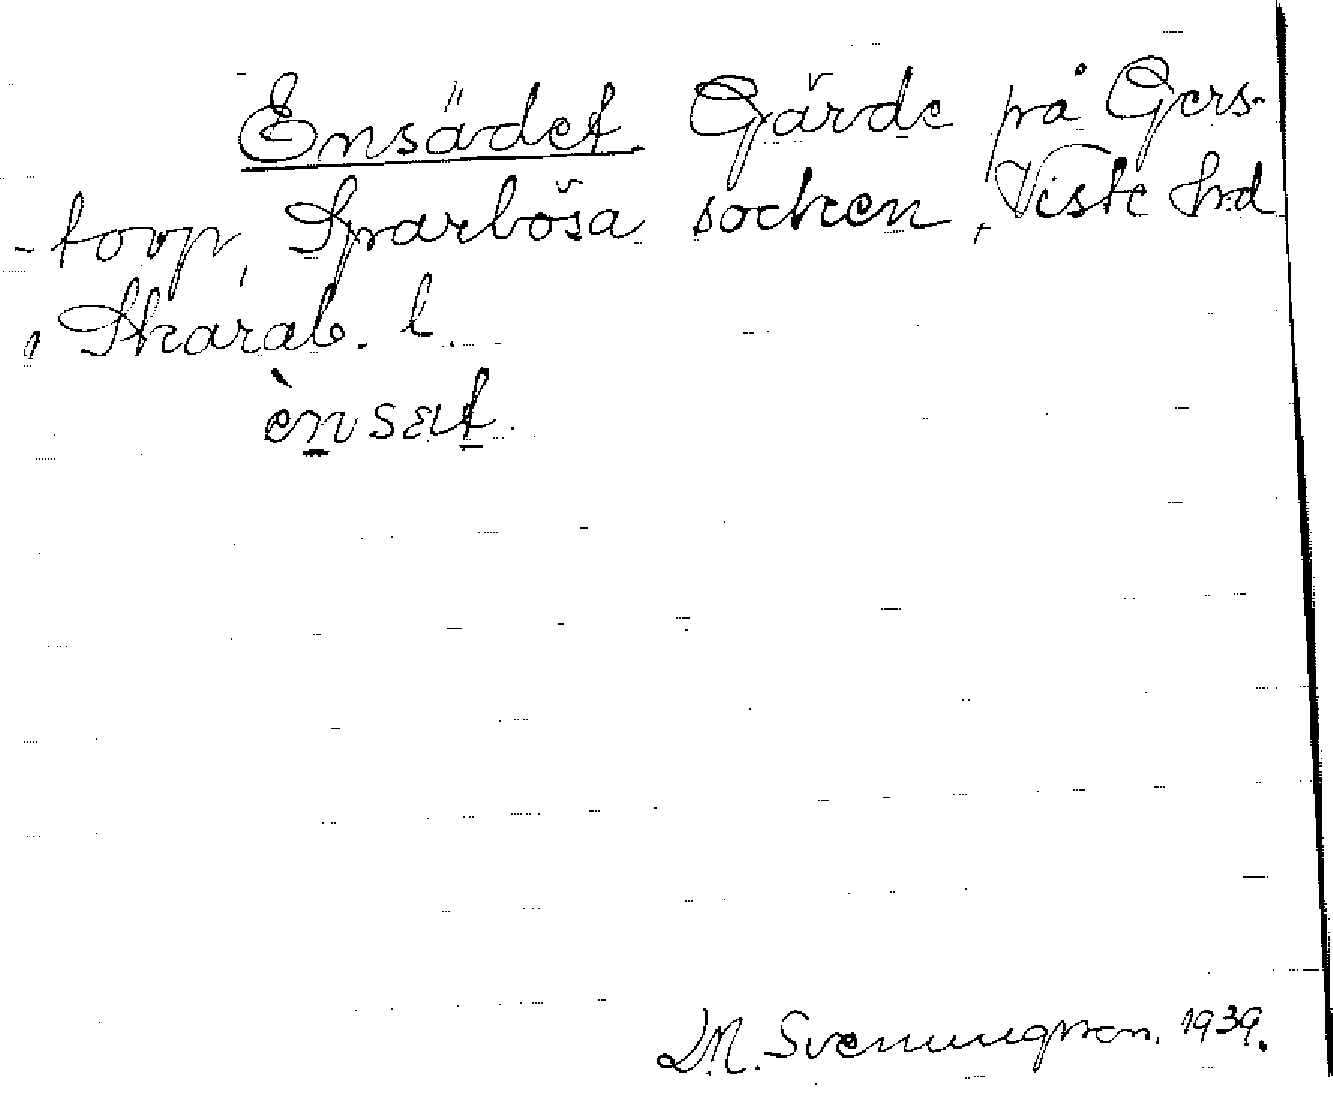 Ensädet. Gärde på Gers-
-torp, Sparlösa socken, Viste hrd
, Skarab. l.
ènsæt.
D.M. Svenungsson. 1939.